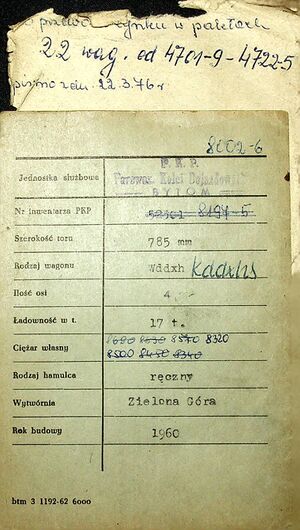 rynku w paletach
22 wag. od 4701-9 - 4722-5
pismo z dn. 22.3.76 r
8002-6
P. K. P.
Jednostka służbowa Parowoz. Kolei Dojazdowych
BYTOM
Nr inwentarza PKP 8197-5
Szerokość toru 785 mm
Rodzaj wagonu Wddxh Kddxhs
Ilość osi 4
Ładowność w t. 17 t.
Ciężar własny 8570 8320
8500 8450 8340
Rodzaj hamulca ręczny
Wytwórnia Zielona Góra
Rok budowy 1960
btm 3 1192-62 6000